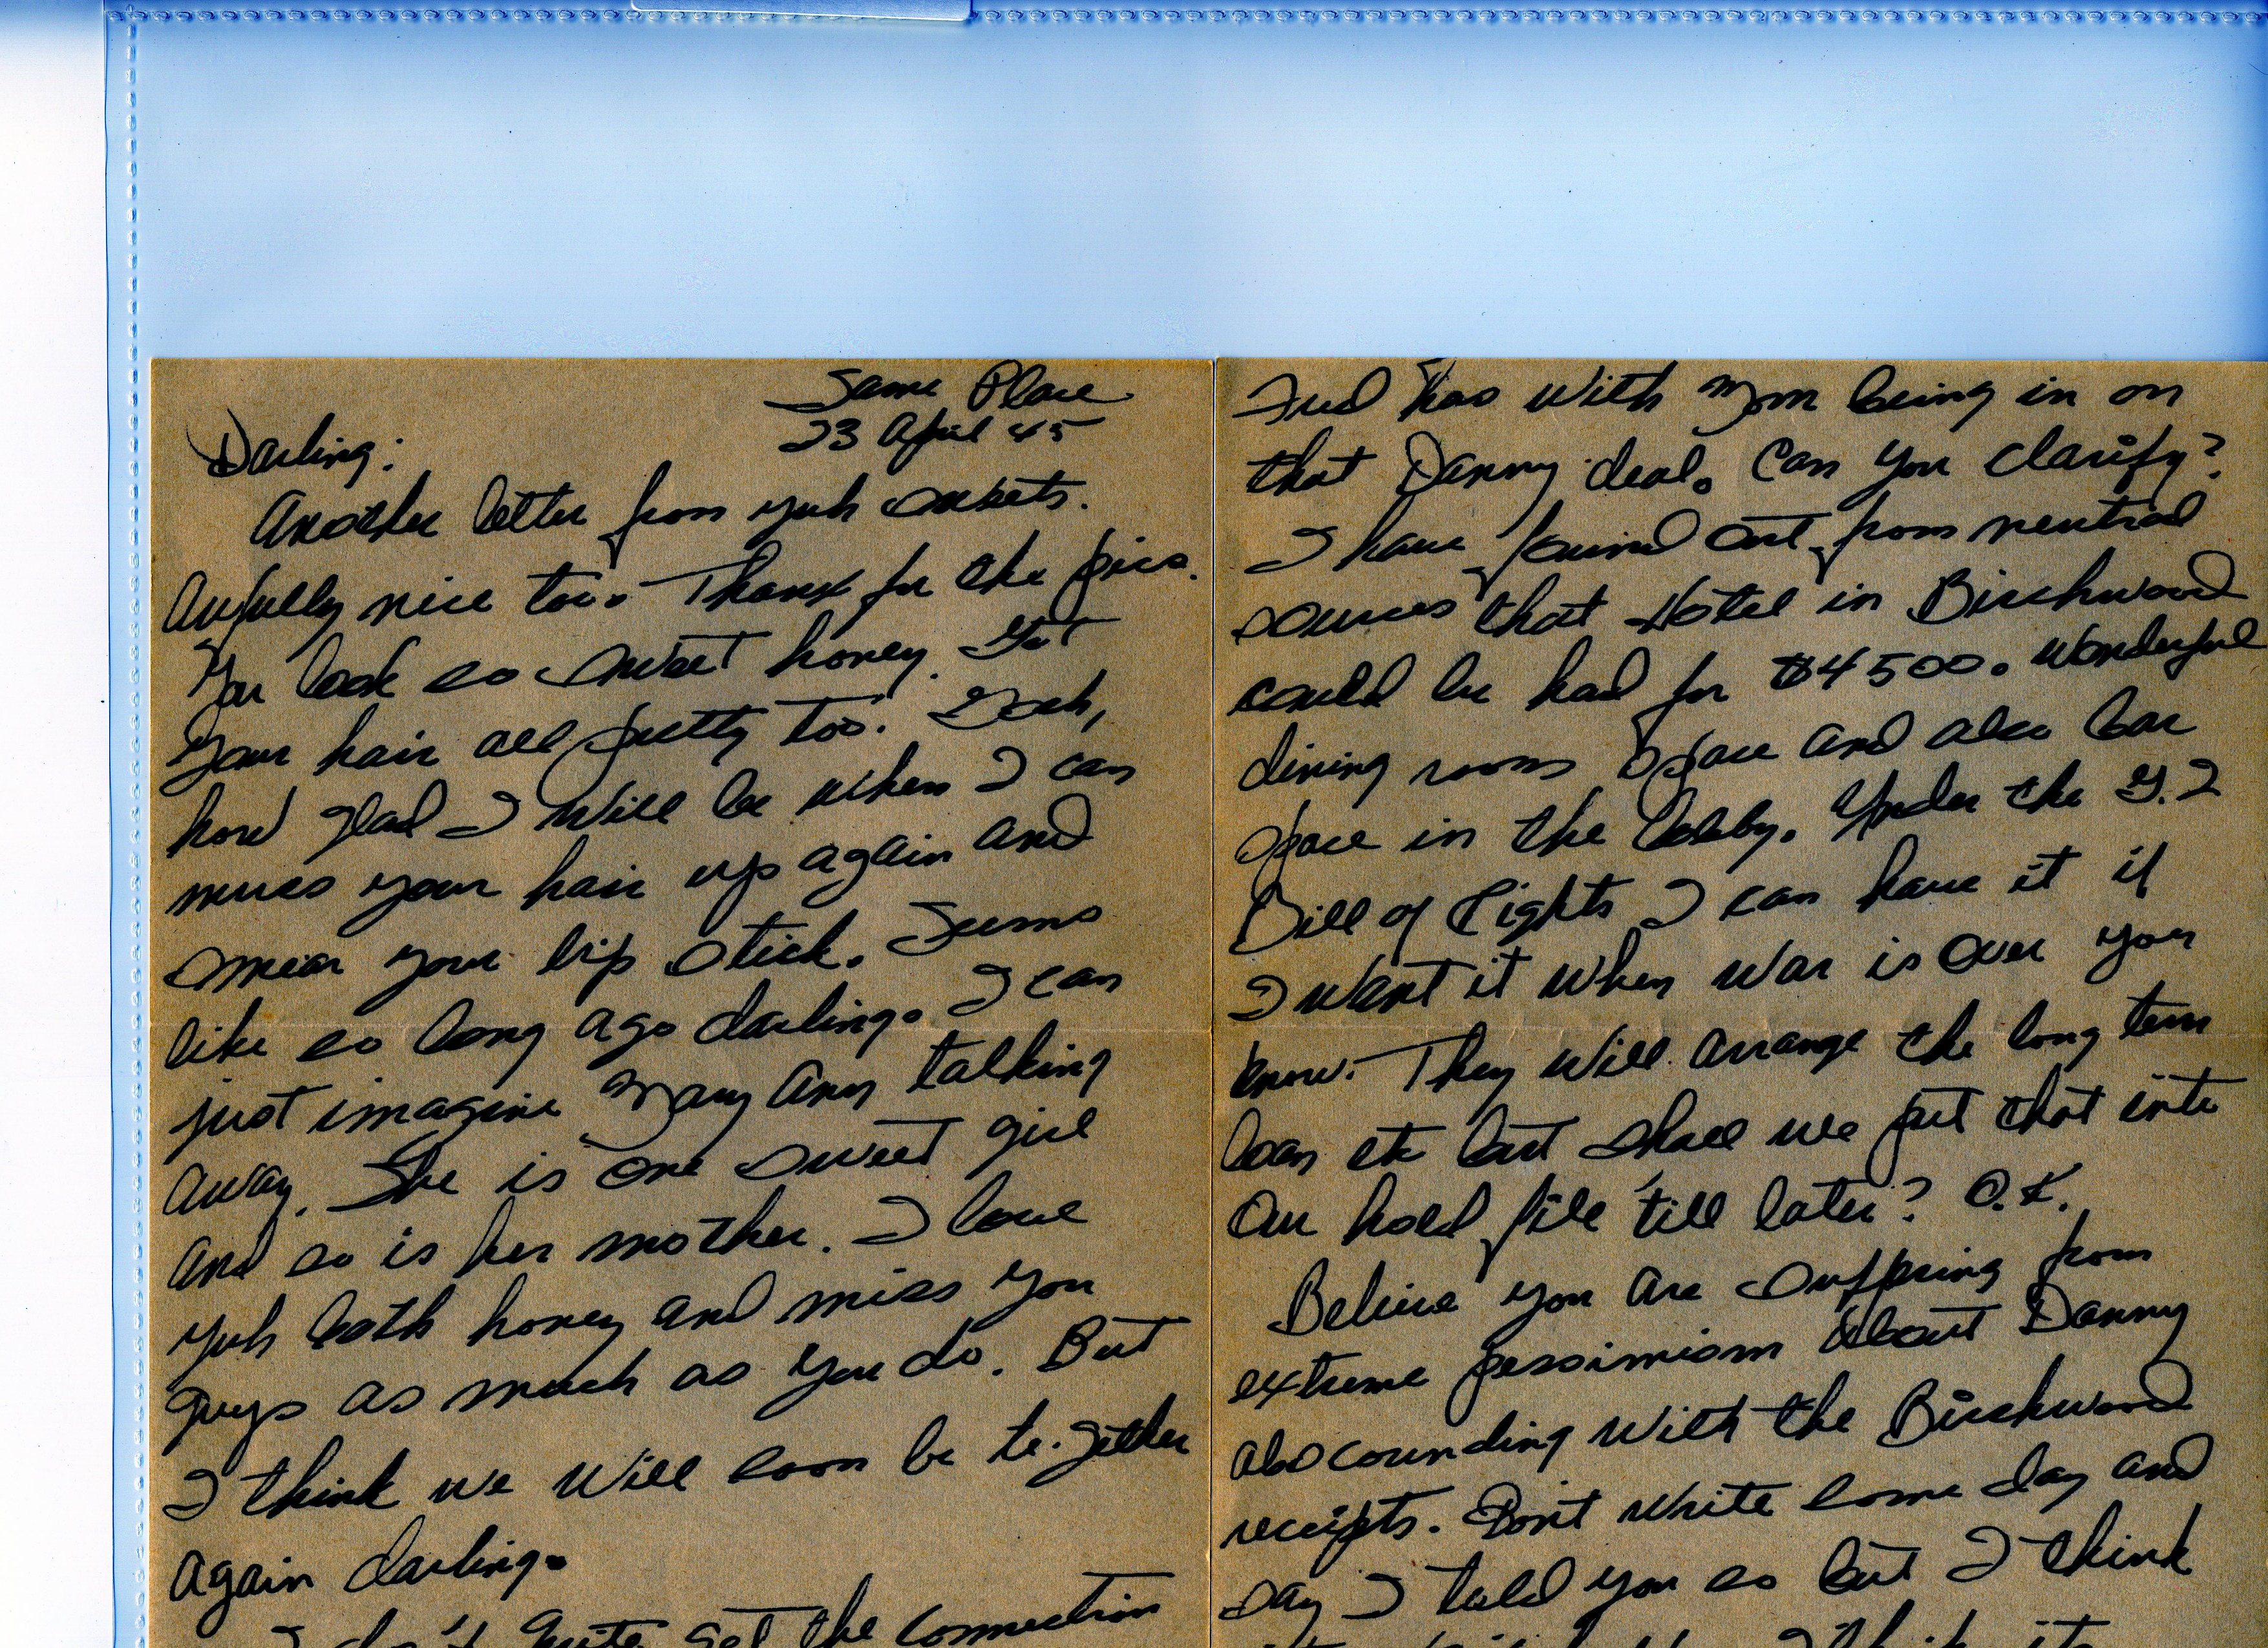 Same Place
23 April 45
Darling:
Another letter from yuh sweets.
Awfully nice too. Thanx for the pics.
You look so sweet honey. Got
your hair all pretty too. Gosh,
how glad I will be when I can
muss your hair up again and
smear your lip stick. Seems
like so long ago darling. I can
just imagine Mary Ann talking
away. She is one sweet girl
and so is her mother. I love
yuh both honey and miss you
guys as much as you do. But
I think we will soon be to-gether
again darling.
I don't quite get the connection
Fred has with Mom being in on
that Danny deal. Can you clarify?
I have found out from neutral
sources that Hotel in Birchwood
could be had for $4500. Wonderful
dining room space and also bar
space in the lobby. Under the G.I
Bill of Rights I can have it if
I want it when war is over you
know. They will arrange the long term
loan etc but shall we put that into
our hold file 'till later? O.K.
Believe you are suffering from
extreme pessimism about Danny
abscounding with the Birchwood
receipts. Don't write some day and
say I told you so but I think